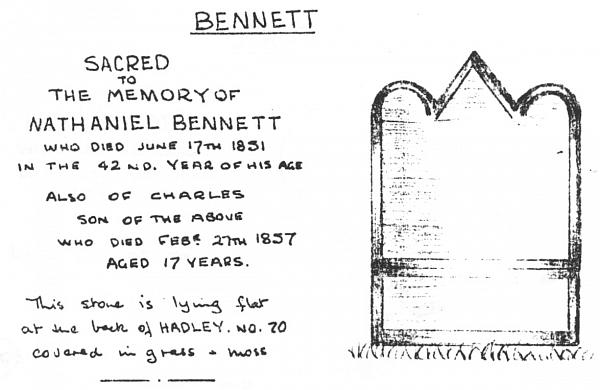 BENNETT
SACRED
TO
THE MEMORY OF
NATHANIEL BENNETT
WHO DIED JUNE 17TH 1851
IN THE 42ND. YEAR OF HIS AGE
ALSO OF CHARLES
SON OF THE ABOVE
WHO DIED FEBR. 27TH 1857
AGED 17 YEARS.
This stone is lying flat
at the back of HADLEY. NO. 70
covered in grass + moss